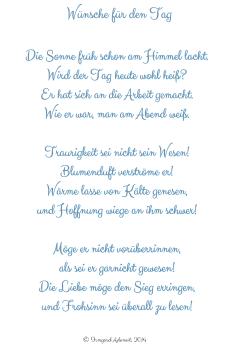 Wünsche für den Tag
Die Sonne früh schon am Himmel lacht.
Wird der Tag heute wohl heiß?
Er hat sich an die Arbeit gemacht.
Wie er war, man am Abend weiß.
Traurigkeit sei nicht sein Wesen!
Blumenduft verströme er!
Wärme lasse von Kälte genesen,
und Hoffnung wiege an ihm schwer!
Möge er nicht vorüberrinnen,
als sei er garnicht gewesen!
Die Liebe möge den Sieg erringen,
und Frohsinn sei überall zu lesen!
© Irmgard Adomeit, 2014